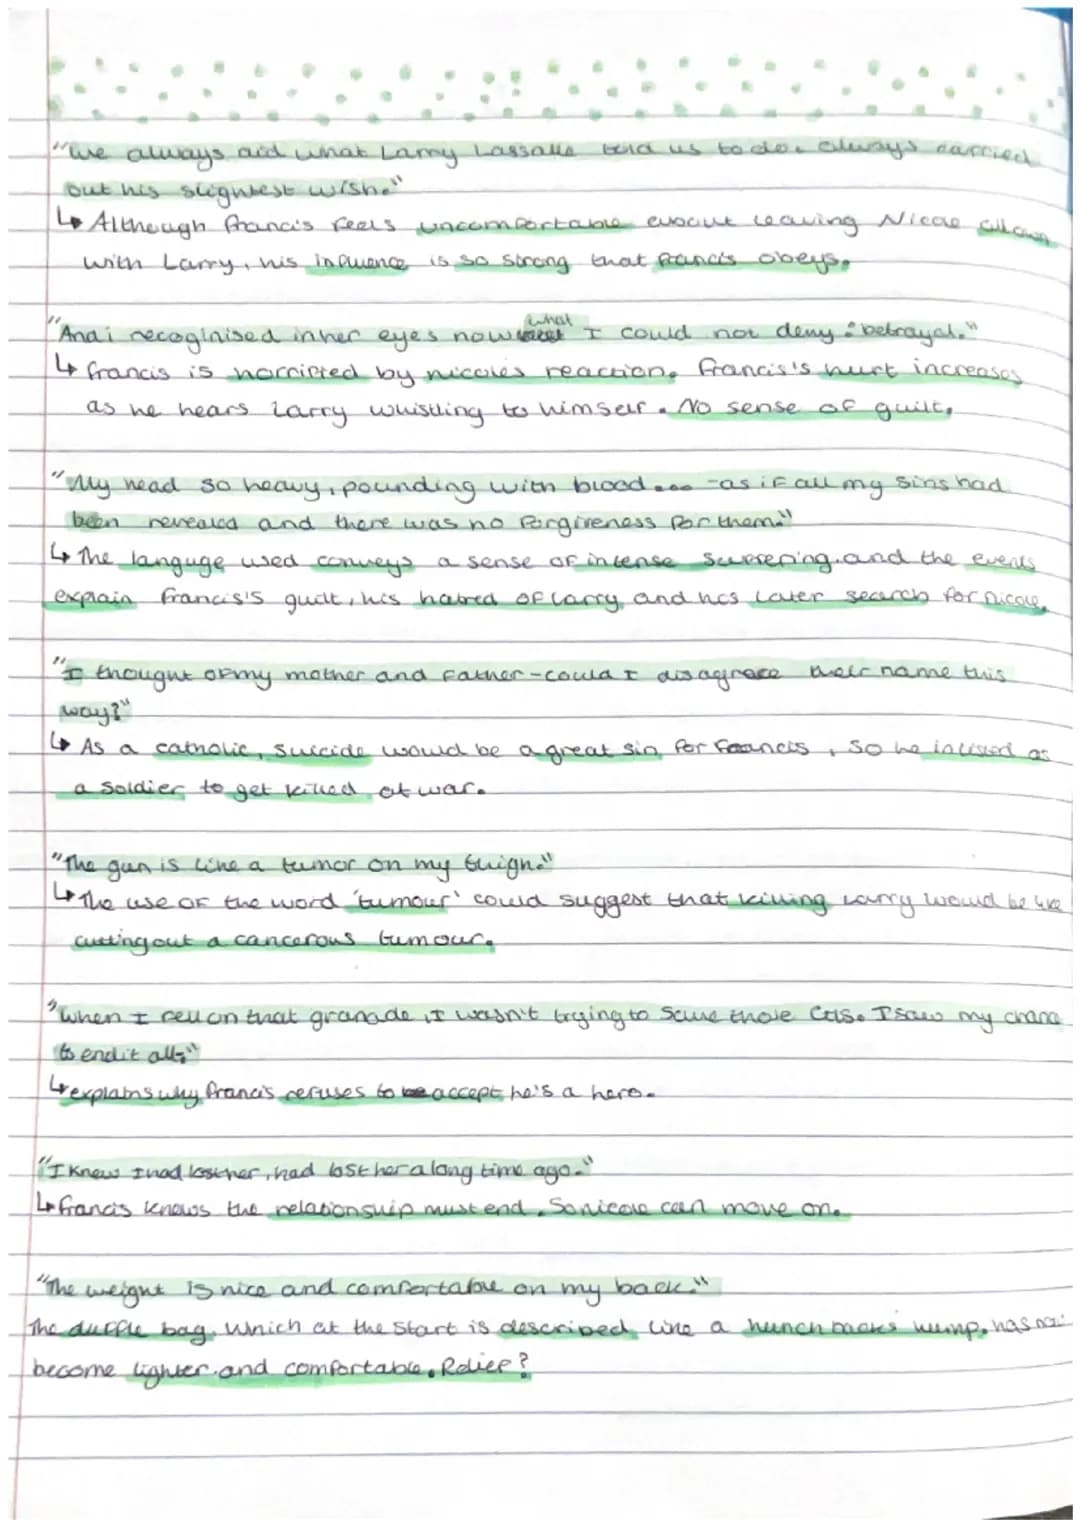 "We always did what Larry Lassalle told us to do. Always carried
out his slightest wish."
↳ Although francis feels uncomfortable about leaving Nicole allown
with Larry, his influence is so strong that francis obeys.
"And i recoginised in her eyes now what I could not deny: betrayal."
↳ francis is horrified by nicoles reaction. francis's hurt increases
as he hears Larry whistling to himself. No sense of guilt.
"My head so heavy, pounding with blood... -as if all my sins had
been revealed and there was no forgiveness for them."
↳ The languge used conveys a sense of intense suffering and the events
explain francis's guilt, his hatred of larry and his later search for nicole.
"I thought of my mother and father-could I disagrace their name this
way?"
↳ As a catholic, suicide would be a great sin for francis, so he inlisted as
a soldier to get killed at war.
"The gun is like a tumor on my thigh."
↳ The use of the word 'tumour' could suggest that killing larry would be like
cutting out a cancerous tumour.
"When I fell on that granade, I wasn't trying to save those GIs. I saw my chanc
to end it all."
↳ explains why francis refuses to accept he's a hero.
"I knew I had lost her, had lost her a long time ago."
↳ francis knows the relationship must end. So nicole can move on.
"The weight is nice and comfortable on my back."
The duffle bag. Which at the start is described like a hunchbacks hump, has
become lighter and comfortable. Relief?